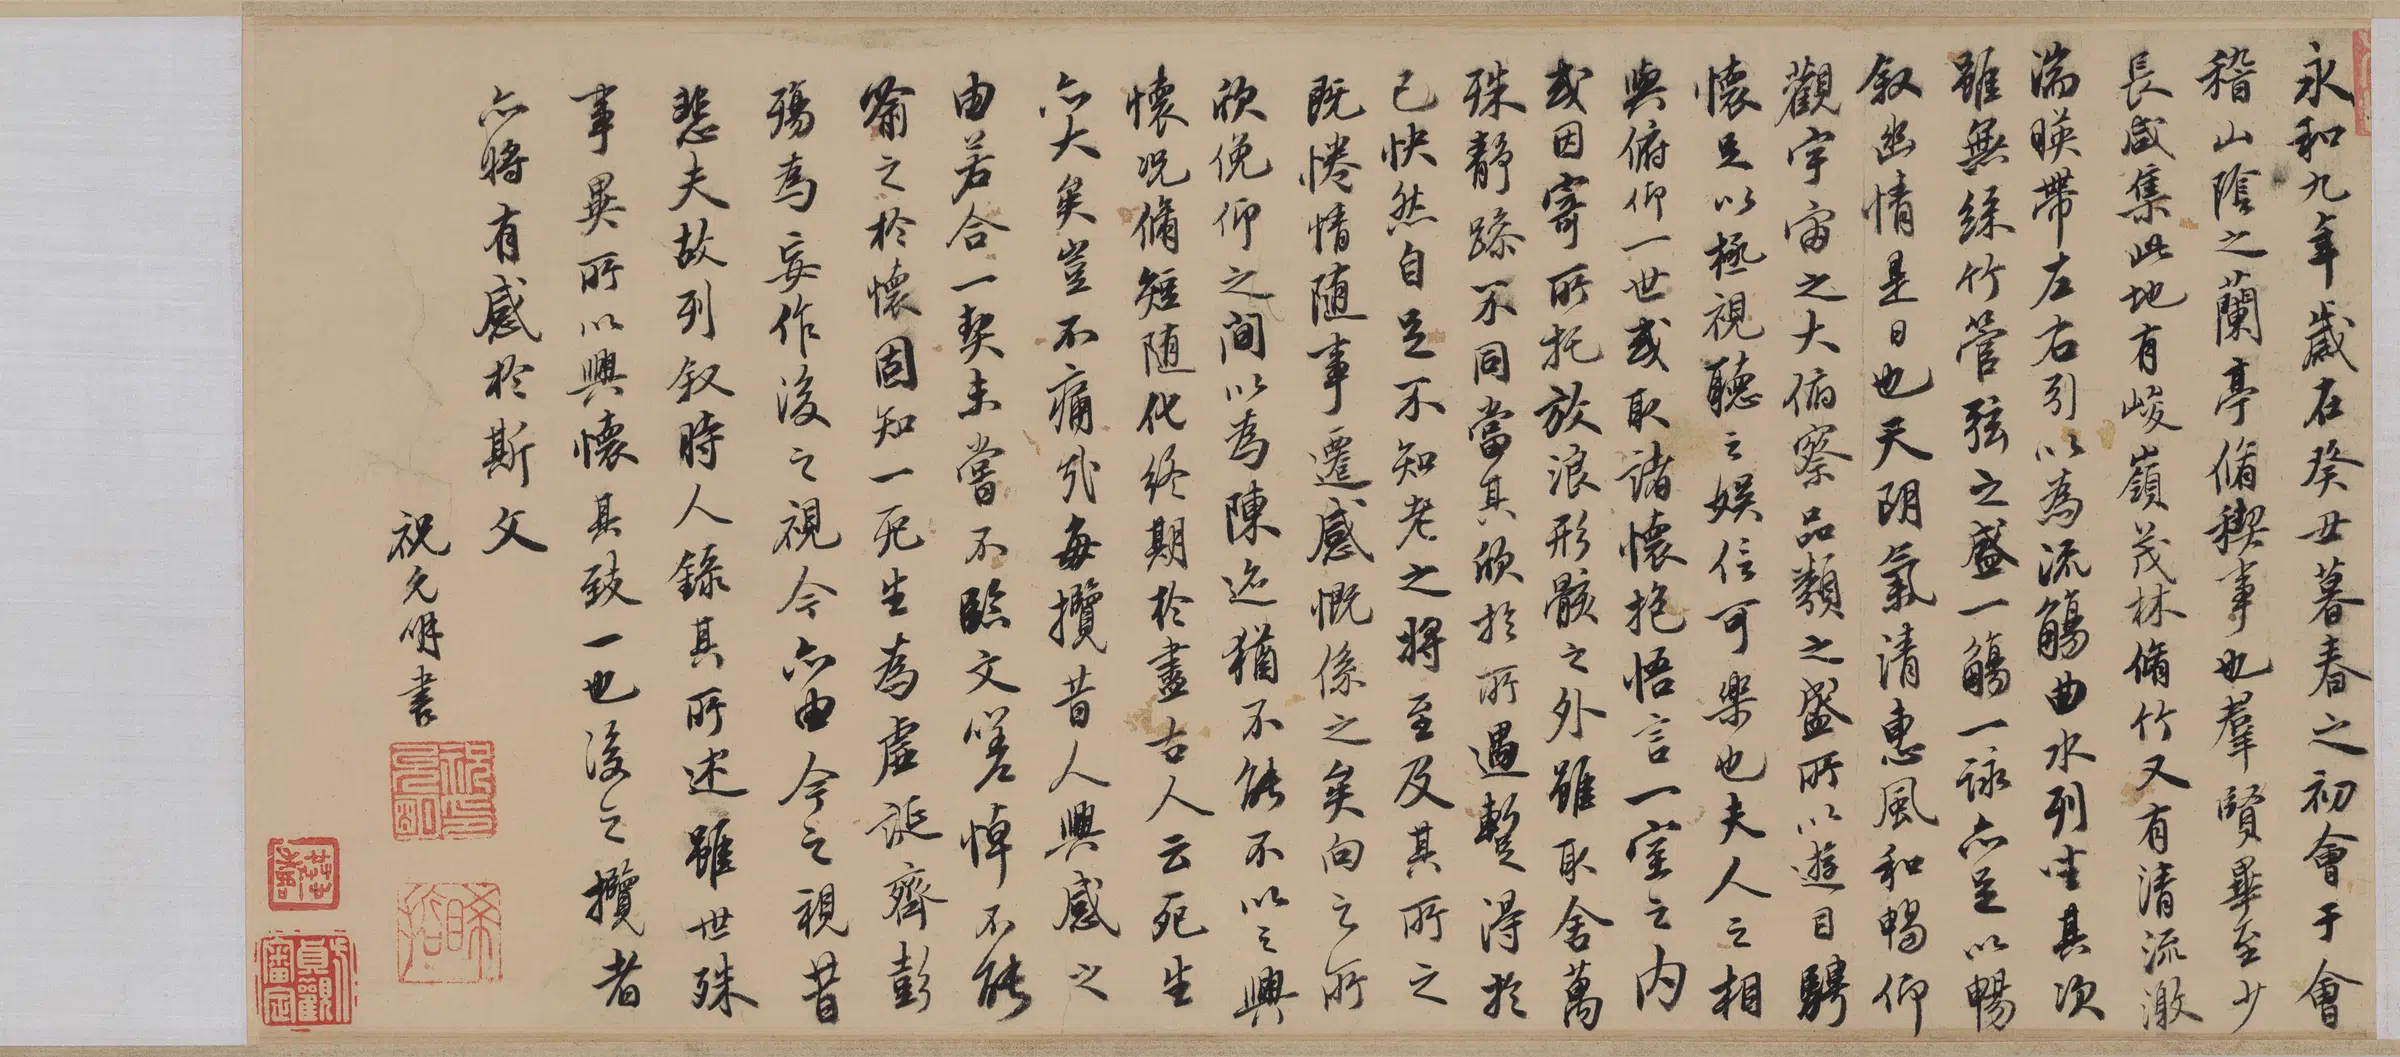 永和九年歲在癸丑暮春之初會于會
稽山陰之蘭亭脩稧事也羣賢畢至少
長咸集此地有峻嶺茂林脩竹又有清流激
湍暎帶左右引以為流觴曲水列坐其次
雖無絲竹管弦之盛一觴一詠亦足以暢
叙幽情是日也天朗氣清惠風和暢仰
觀宇宙之大俯察品類之盛所以遊目騁
懷足以極視聽之娛信可樂也夫人之相
與俯仰一世或取諸懷抱悟言一室之內
或因寄所托放浪形骸之外雖取舍萬
殊靜躁不同當其欣於所遇暫得於
己快然自足不知老之將至及其所之
既惓情随事遷感慨係之矣向之所
欣俛仰之間以為陳迹猶不能不以之興
懷况脩短随化終期於盡古人云死生
亦大矣豈不痛哉每攬昔人興感之
由若合一契未嘗不臨文嗟悼不能
喻之於懷固知一死生為虛誕齊彭
殤為妄作後之視今亦由今之視昔
悲夫故列叙時人錄其所述雖世殊
事異所以興懷其致一也後之攬者
亦將有感於斯文
祝允明書
祝允明印
晞哲